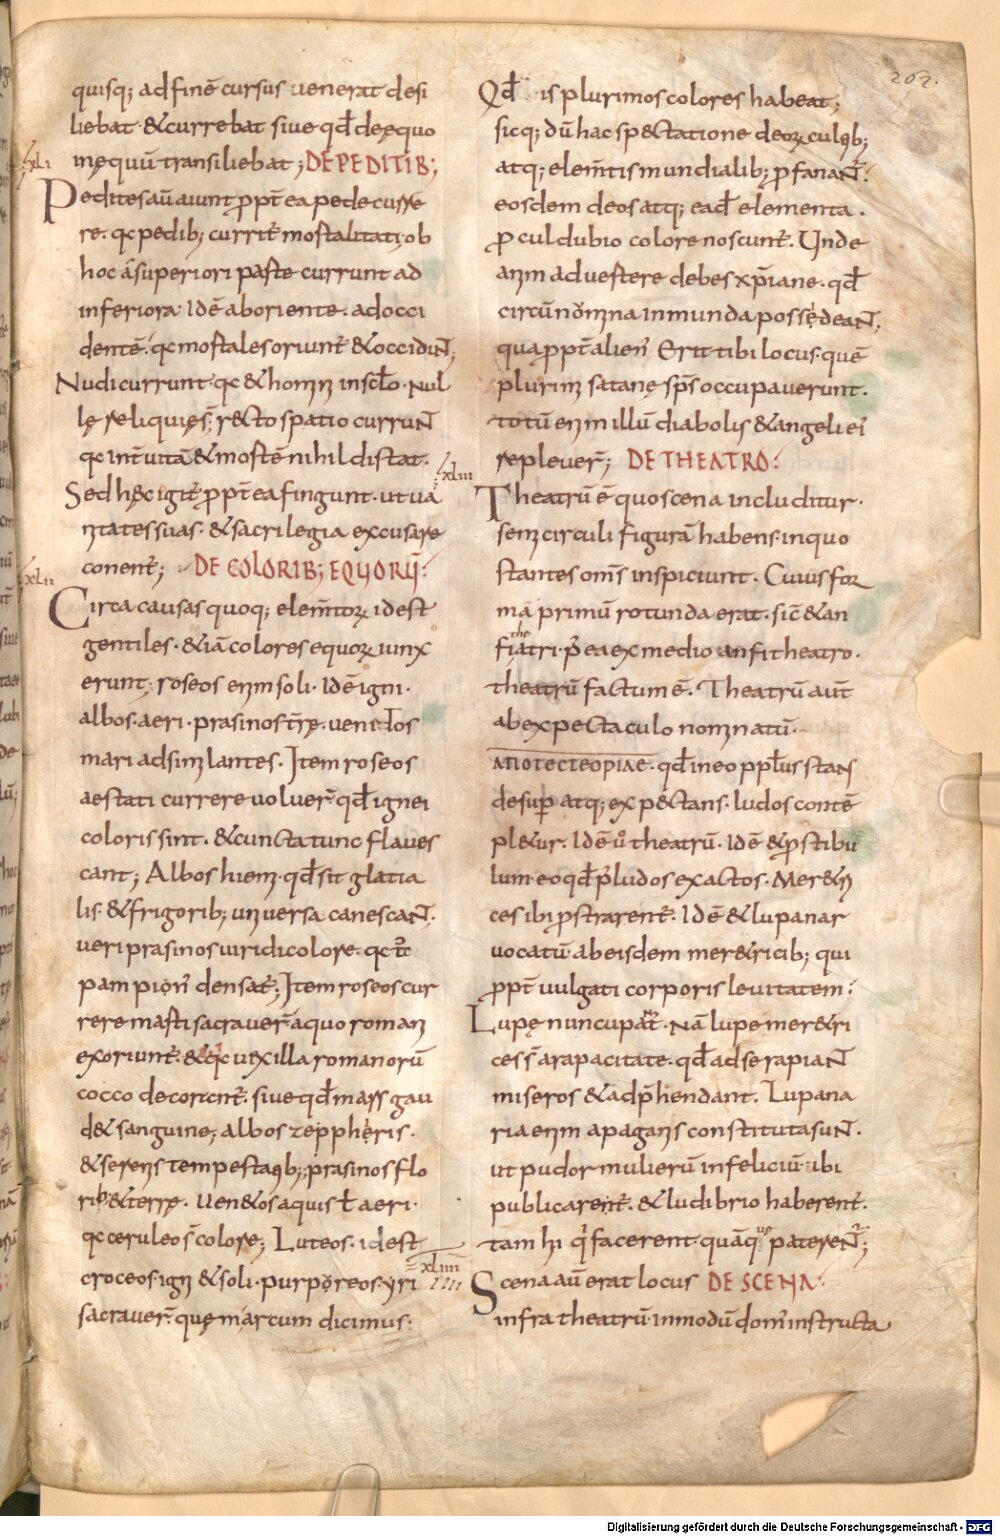 203.
quisq; ad finē cursus venerat desi
liebat · & currebat sive qđ de ęquo
in ęquū transiliebat ; DE PEDITIB;
xli
Pedites aū aiunt ꝓpt̄ ea pede curre
re · qc pedib; currit̄ mortalitati · ob
hoc a superiori parte currunt ad
inferiora · Idē ab oriente · ad occi
dentē · qc mortales oriunt̄ & occidūN̄;
Nudi currunt · qc & hominı in sc̄lo · nul
lę reliquię s̄; r&to spatio curruN̄
qc int̄ uitā & mortē nihil distat ·
Sed hęc igit̄ ꝓpt̄ ea fingunt · ut va
nitates suas · & sacrilegia excusare
conent̄; DE COLORIB; EQUORŪ:
xlii
Circa causas quoq; elem̄toꝝ idest
gentiles · & iā colores equoꝝ iunx
erunt; roseos enim soli · Idē igni ·
albos · aeri · prasinos t̄rę · uenetos
mari adsimilantes · Item roseos
aestati currere voluer̄ qđ ignei
coloris sint · & cuncta tunc flaves
cant; Albos hiemi · qđ sit glatia
lis · & frigorib; universa canescaN̄ ·
veri prasinos uiridi colore · qc t̄c
pampion̄ densat̄; Item roseos cur
rere marti sacraver̄ a quo romani
exoriunt̄ · & qc uexilla romanorū
cocco decorent̄ · sive qđ mars gau
d& sanguine; albos zeppheris ·
& serenis tempestatib; prasinos flo
rib; & terrę · Uen&os aquis t̄ aeri ·
qc ceruleo s̄ colore; Luteos · idest
croceos igni & soli · purporeos · yri
sacraver̄ quę marcum dicimus:
Qđ is plurimos colores habeat;
sicq; dū hac sp&tatione deoꝝ cultib;
atq; elem̄tis mundialib; ꝓfanaN̄r:
eosdem deos atq; eađ elementa ·
ꝓcul dubio colore noscunt̄ · Unde
anim advertere debes xp̄iane · qđ
circū nom̄na inmunda possędeaN̄;
qua ꝓpt̄ alien̄ Erit tibi locus · quē
plurimi satanę sp̄s occupaverunt ·
totū enim illū diabolis & angeli ei
replever̄; DE THEATRO:
xliii
Theatrū ē quo scena includitur ·
semicirculi figurā habens · in quo
stantes om̄s inspiciunt · Cuius for
ma primū rotunda erat · sic̄ & an
fitheatri · p̄ ea ex medio anfitheatro ·
theatrū factum ē · Theatrū aūt
ab expectaculo nominatū ·
ΑΠΟΤΕCΤΕΟΡΙΑΕ · qđ in eo ppl̄us stans
desup̄ atq; exp&tans · ludos contē
pl&ur · Idē ū theatrū · Idē & ꝓstibu
lum · eo qđ p̄ ludos exactos · Mer&ri
ces ibi ꝓstrarent̄ · Idē & lupanar
vocatū ab eisdem mer&ricib; qui
ꝓpt̄ vulgati corporis levitatem:
Lupę nuncupat̄ · Nā lupe mer&ri
ces s̄ a rapacitate · qđ ad se rapiaN̄
miseros & adp̄hendant · Lupana
ria enim a paganis constituta suN̄ ·
ut pudor mulierū infeliciū · ibi
publicarent̄ · & ludibrio haberent̄ ·
tam hi q̄ facerent · quāq; que patereN̄;
xliiii
Scena aū erat locus DE SCENA:
infra theatrū in modū dom̄ instructa
Digitalisierung gefördert durch die Deutsche Forschungsgemeinschaft - DFG